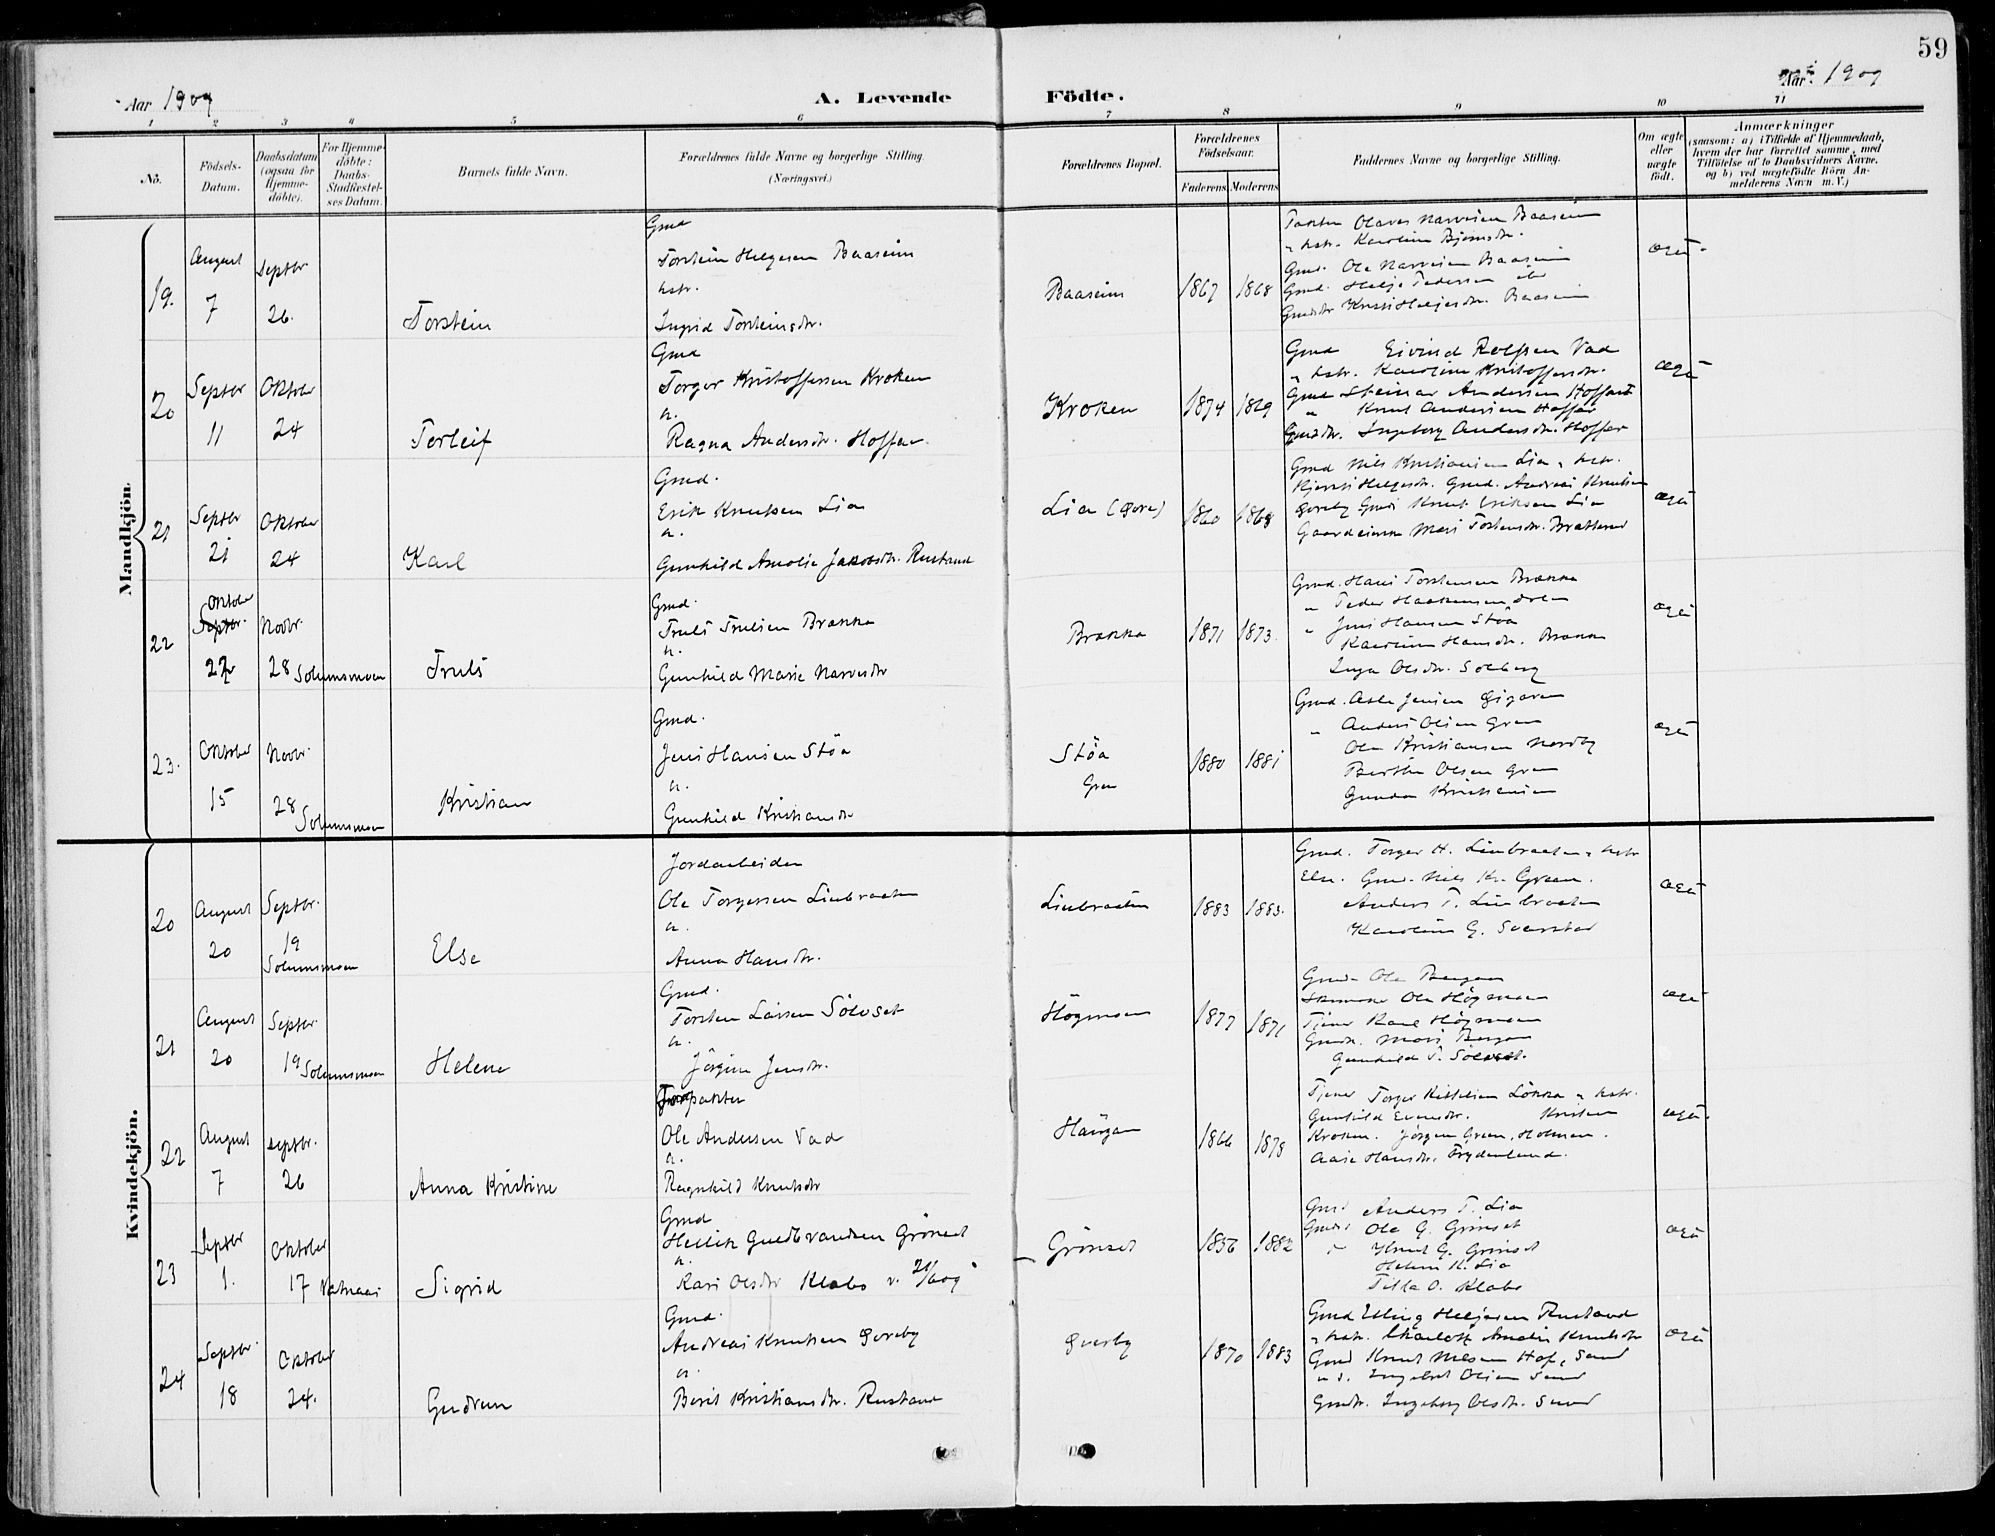 59
Aar 1909
A. Levende Födte.
Aar 1909
1 2 3 4 5 6 7 8 9 10 11
No.
Födsels-Datum.
Daabsdatum (ogsaa for Hjemme-döbte).
For Hjemme-döbte: Daabs-Stadfæstel-ses Datum.
Barnets fulde Navn.
Forældrenes fulde Navne og borgerlige Stilling.
(Næringsvei.)
Forældrenes Bopæl.
Forældrenes Födselsaar.
Faderens Moderens
Faddernes Navne og borgerlige Stilling.
Om ægte eller uægte født.
Anmærkninger
(saasom: a) i Tilfælde af Hjemmedaab, hvem der har forrettet samme, med Tilföielse af to Daabsvidners Navne, og b) ved uægtefödte Börn An-melderens Navn m. V.)
Mandkjön.
19.
August 7
Septbr 26.
Torstein
Gmd
Torstein Helgesen Baaseim
hstr.
Ingrid Torsteinsdtr.
Baaseim
1867 1868
Olaves Narvesen Baaseim
" hstr. Karoline Bjørnsdtr.
Gmd. Ole Narvesen Baaseim
Gmd. Helge Pedersen
Kristi Helgesdtr. Baaseim
ægte
20
Septbr 11
Oktober 24
Torleif
Gmd
Torger Kristoffersen Kroken
h.
Ragna Andersdtr. Hoffar
Kroken
1874 1869
Gmd Eivind Rolfsen Vad
" hstr. Karoline Kristoffersdtr.
Gmd Steinar Andersen Hoffart
" Knut Andersen Hoffar
Gmdsdtr. Ingeborg Andersdtr. Hoffar
ægte
21
Septbr 21
Oktober 24
Karl
Gmd.
Erik Knutsen Lia
h.
Gunhild Amalie Jakobsdtr. Rustand
Lia
1860 1868
Gmd Nils Kristiansen Lia, hstr.
Kjersti Helgesdtr. Gmd. Andreas Knutsen
Knut Eriksen Lia
ægte
22
Oktober
Septbr. 22
Novbr. 28 Solumsmoen
Truls
Gmd.
Truls Trulsen Brakka
h.
Gunhild Marie Narvesdtr
Brakka
1871 1873.
Gmd. Hans Torstensen Brakka
" Peder Haakensen
" Jens Hansen Stöa
Karoline Hansdtr. Brakka
Inga Olsdtr. Solberg
ægte
23.
Oktober 15
Novbr. 28 Solumsmoen
Kristian
Gmd.
Jens Hansen Stöa
h.
Gunhild Kristiansdtr
Stöa
Gren
1880 1881
Gmd. Asle Jensen
" Anders Olsen Gren
Ole Kristiansen Nordby
Berthe Olsen Gren
Gunda Kristiansen
ægte
Kvindekjön.
20
August 20
Septbr. 19 Solumsmoen
Else
Jordarbeider
Ole Torgersen Liebraaten
h.
Anna Hansdtr.
Liebraaten
1883 1883.
Gmd. Torger H. Liebraaten, hstr
Else. Gmd. Nils Kr. Green.
Anders T. Liebraaten
Karoline G.
ægte
21
August 20
Septbr. 19 Solumsmoen
Helene
Gmd.
Torsten Larsen Sölvset
h.
Jörgine Jensdtr.
Högmoen
1877 1871
Ole Bergan
Ole Högmoen
Tjener Karl Högmoen
Mari Bergan
Gunhild T. Sölvset.
ægte
22
August 7
Septbr. 26
Anna Kristine
Forpakter
Ole Andersen Vad
h.
Ragnhild Knutsdtr
Haugan
1866 1878
Tjener Torger Kittilsen Lökka, hstr.
Gunhild Evensdtr. Kristen
Kroken. Jörgen Green, Holmen.
Aase Hansdtr. Frydenlund.
ægte
23
Septbr 1.
Oktober 17
Sigrid
Gmd
Hellik Guldbrandsen Grönset
h.
Kari Olsdtr Klabo
Grönset
1856 1882
Gmd Anders T. Lia
Ole G. Grönset
" Knut G. Grönset
Helene K. Lia
O. Klabo
ægte
24
Septbr. 18
Oktober 24.
Gudrun
Gmd.
Andreas Knutsen Goreby
h.
Berit Kristiansdtr. Rustand
1870 1883
Gmd Elling Helgesen Rustand
" hstr. Charlotte Amalie Knutsdtr
Gmd Knut Nilsen Hof, Sand
" s. Ingebret Olsen Sand
Gmdtr. Ingeborg Olsdtr. Sand
ægte